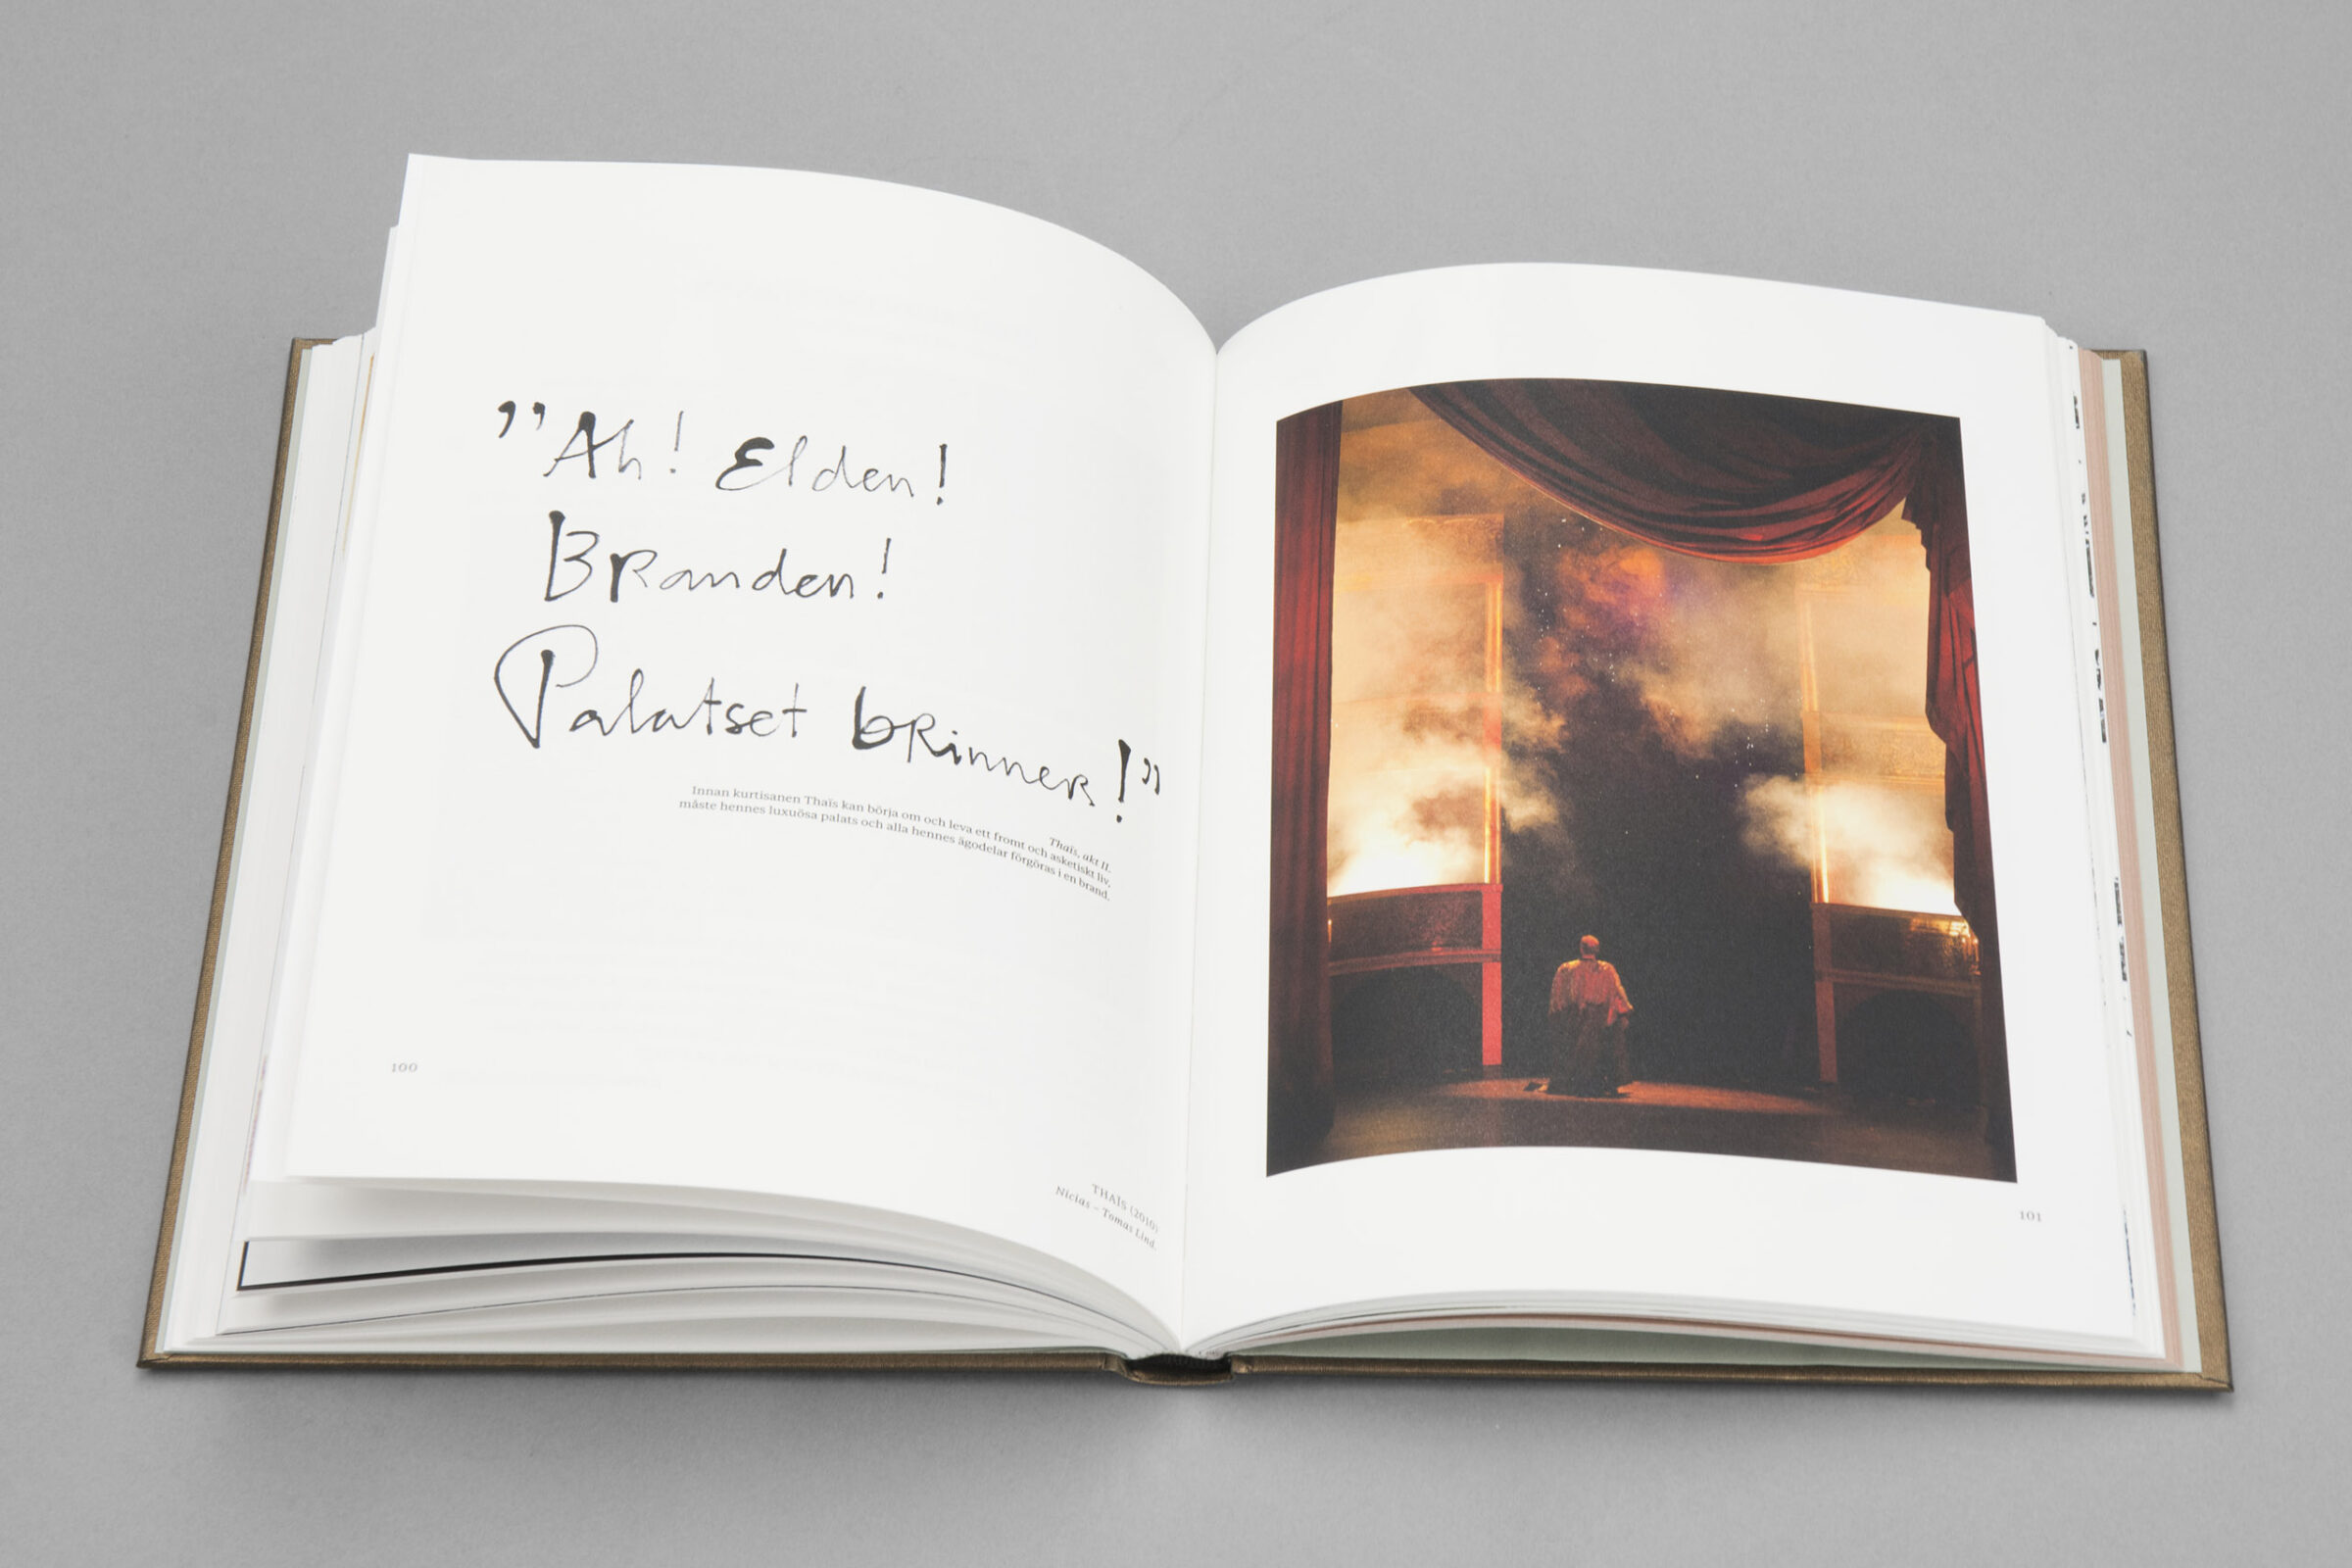 ”Ah! Elden!
Branden!
Palatset brinner!”
Thaïs, akt II.
Innan kurtisanen Thaïs kan börja om och leva ett fromt och asketiskt liv,
måste hennes luxuösa palats och alla hennes ägodelar förgöras i en brand.
100
THAÏS (2010)
Nicias – Tomas Lind.
101